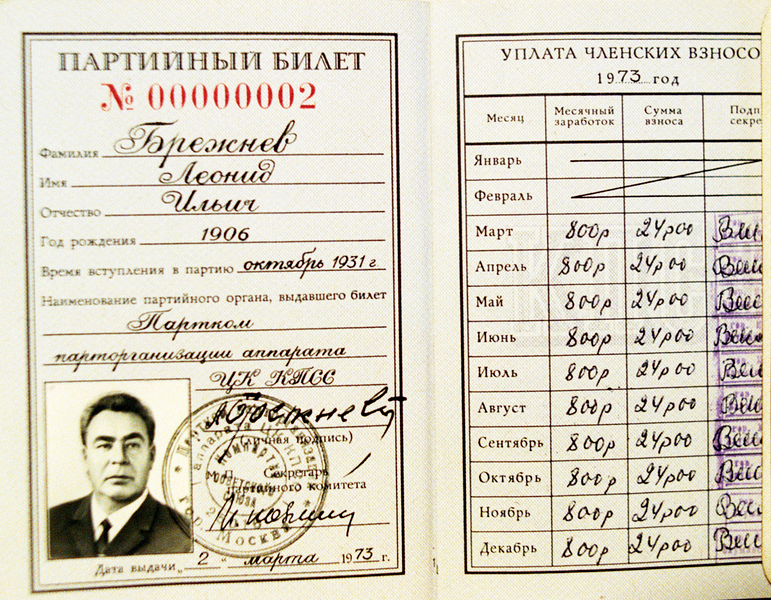 ПАРТИЙНЫЙ БИЛЕТ
№ 00000002
Фамилия Брежнев
Имя Леонид
Отчество Ильич
Год рождения 1906
Время вступления в партию октябрь 1931 г.
Наименование партийного органа, выдавшего билет
Партком
парторганизации аппарата
ЦК КПСС
(личная подпись)
М.П. Секретарь
партийного комитета
Дата выдачи „2“ марта 1973 г.
УПЛАТА ЧЛЕНСКИХ ВЗНОСО
1973 год
Месяц Месячный заработок Сумма взноса Подп секре
Январь
Февраль
Март 800р 24р00
Апрель 800р 24р00
Май 800р 24р00
Июнь 800р 24р00
Июль 800р 24р00
Август 800р 24р00
Сентябрь 800р 24р00
Октябрь 800р 24р00
Ноябрь 800р 24р00
Декабрь 800р 24р00